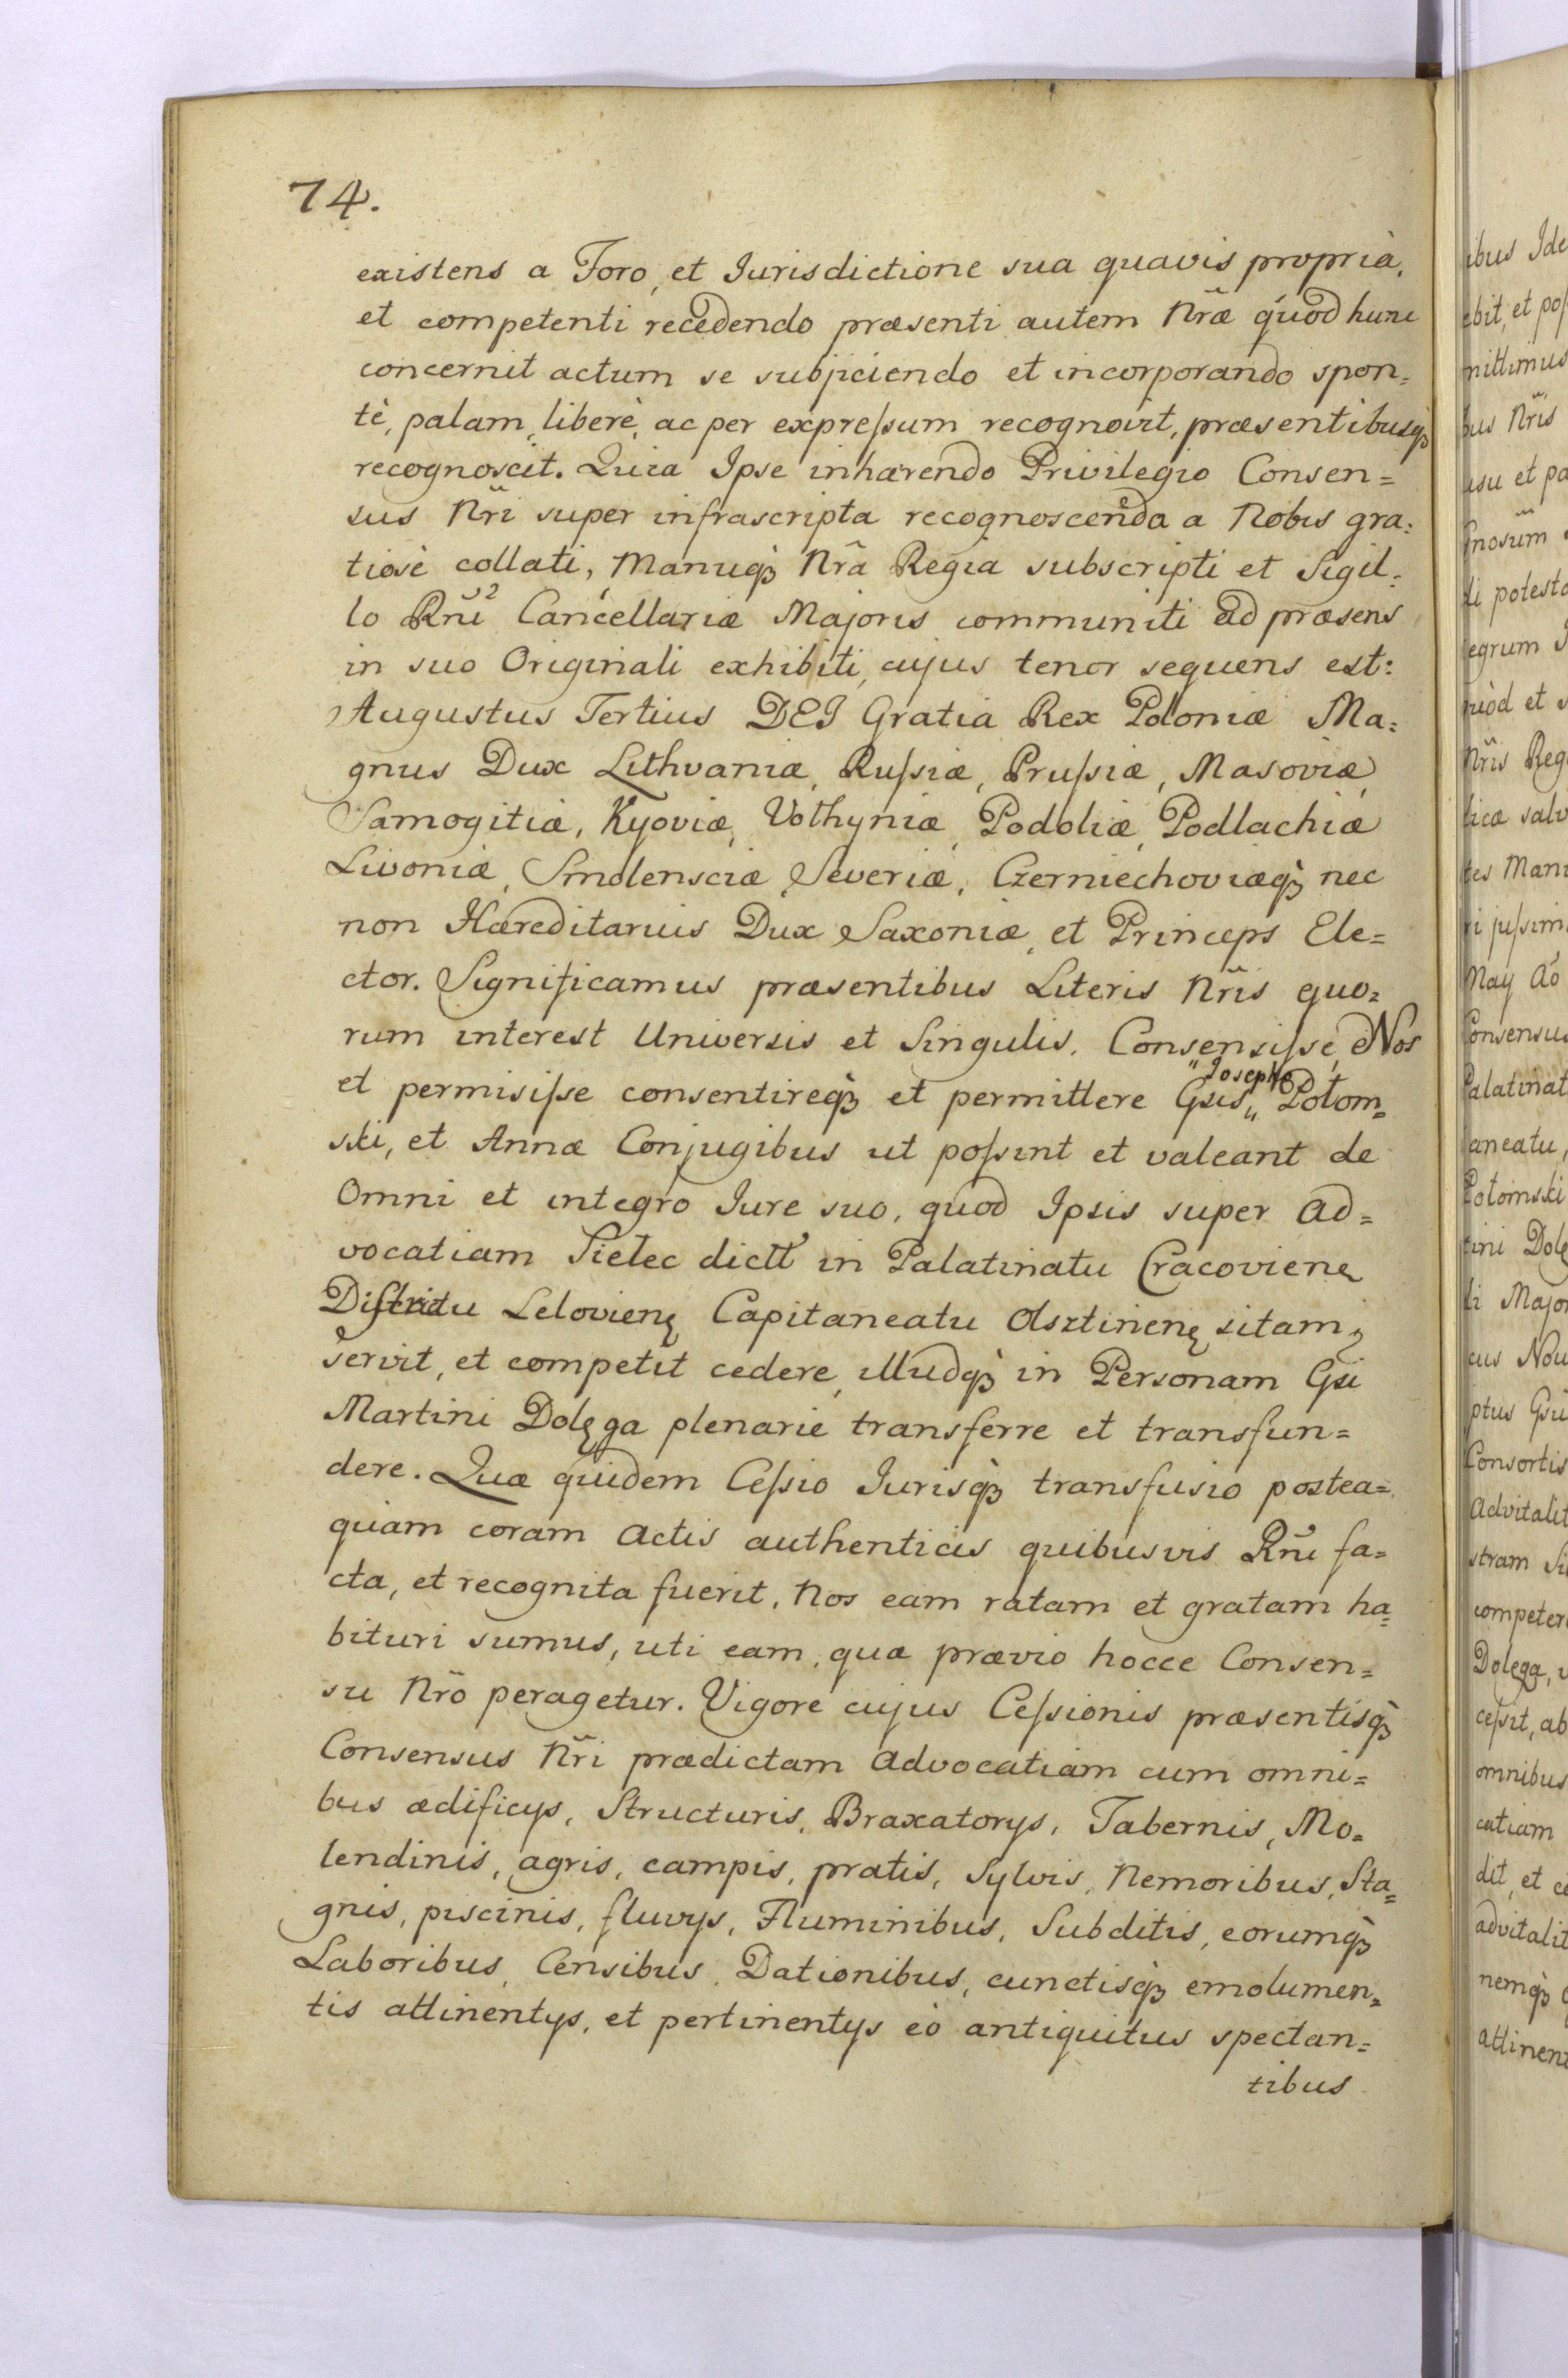 74.
existens a Foro, et Jurisdictione sua quavis propria,
et competenti recedendo præsenti autem Nr̃æ quod hunc
concernit actum se subjiciendo et incorporando spon=
tè, palam, liberè, ac per expreſsum recognovit, præsentibusq́ꝫ
recognoscit. Quia Ipse inhærendo Privilegio Consen=
sus Nr̃i super infrascripta recognoscenda a Nobis gra=
tiosè collati, Manuq́ꝫ Nr̃a Regia subscripti et Sigil=
lo Rñi Cancellariæ Majoris communiti ad præsens
in suo Originali exhibiti, cujus tenor sequens est:
Augustus Tertius DEI Gratia Rex Poloniæ Ma=
gnus Dux Lithvaniæ, Ruſsiæ, Pruſsiæ, Masoviæ,
Samogitiæ, Kyoviæ, Volhyniæ, Podoliæ, Podlachiæ
Livoniæ, Smolensciæ, Severiæ, Czerniechoviæq́ꝫ nec
non Hæreditarius Dux Saxoniæ, et Princeps Ele=
ctor. Significamus præsentibus Literis Nr̃is quo=
rum interest Universis et Singulis. Consensiſse, Nos
et permisiſse consentireq́ꝫ et permittere Gsis „Josepho„ Potom=
ski, et Annæ Conjugibus ut poſsint et valeant de
Omni et integro Jure suo, quod Ipsis super Ad=
vocatiam Sielec dictt in Palatinatu Cracovienę
Districtu Lelovienę Capitaneatu Olsztinenę sitam,
servit, et competit cedere, illudq́ꝫ in Personam Gsi
Martini Dolęga plenarie transferre et transfun=
dere. Quæ quidem Ceſsio Jurisq́ꝫ transfusio postea=
quam coram Actis authenticis quibusvis Rñi fa=
cta, et recognita fuerit, Nos eam ratam et gratam ha=
bituri sumus, uti eam, quæ prævio hocce Consen=
su Nr̃o peragetur. Vigore cujus Ceſsionis præsentisq́ꝫ
Consensus Nr̃i prædictam Advocatiam cum omni=
bus ædificys, Structuris, Braxatorys, Tabernis, Mo=
lendinis, agris, campis, pratis, Sylvis, Nemoribus, Sta=
gnis, piscinis, fluvys, Fluminibus, Subditis, eorumq́ꝫ
Laboribus, Censibus, Dationibus, cunctisq́ꝫ emolumen=
tis attinentys, et pertinentys eò antiquitus spectan=
tibus